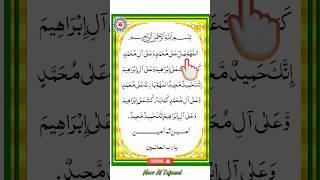 بِسْمِ اللهِ الرَّحْمٰنِ الرَّحِيْمِ
اَللّٰهُمَّ صَلِّ عَلٰى مُحَمَّدٍ وَّعَلٰى اٰلِ مُحَمَّدٍ
كَمَا عَلٰى اِبْرَاهِيْمَ وَعَلٰى اٰلِ اِبْرَاهِيْمَ
اِنَّكَ حَمِيْدٌ مَّجِيْدٌ اَللّٰهُمَّ بَارِكْ عَلٰى مُحَمَّدٍ
وَّعَلٰى اٰلِ مُحَمَّدٍ كَمَا بَارَكْتَ عَلٰى اِبْرَاهِيْمَ
وَعَلٰى اٰلِ اِبْرَاهِيْمَ اِنَّكَ حَمِيْدٌ مَّجِيْدٌ
اٰمين ثم اٰمين
يا رب العالمين
Noor Al Tajweed